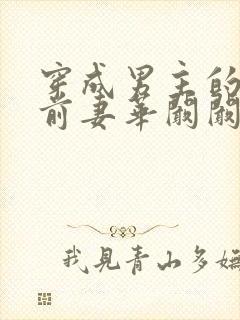 穿成男主的
前妻華闕闕
我見青山多嫵